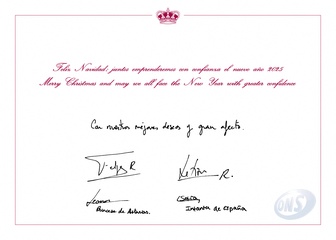 Feliz Navidad; juntos emprendemos con confianza el nuevo año 2025
Merry Christmas and may we all face the New Year with greater confidence
Con nuestros mejores deseos y gran afecto.
Felipe R
Letizia R.
Leonor
Princesa de Asturias.
Sofía
Infanta de España
ONSI